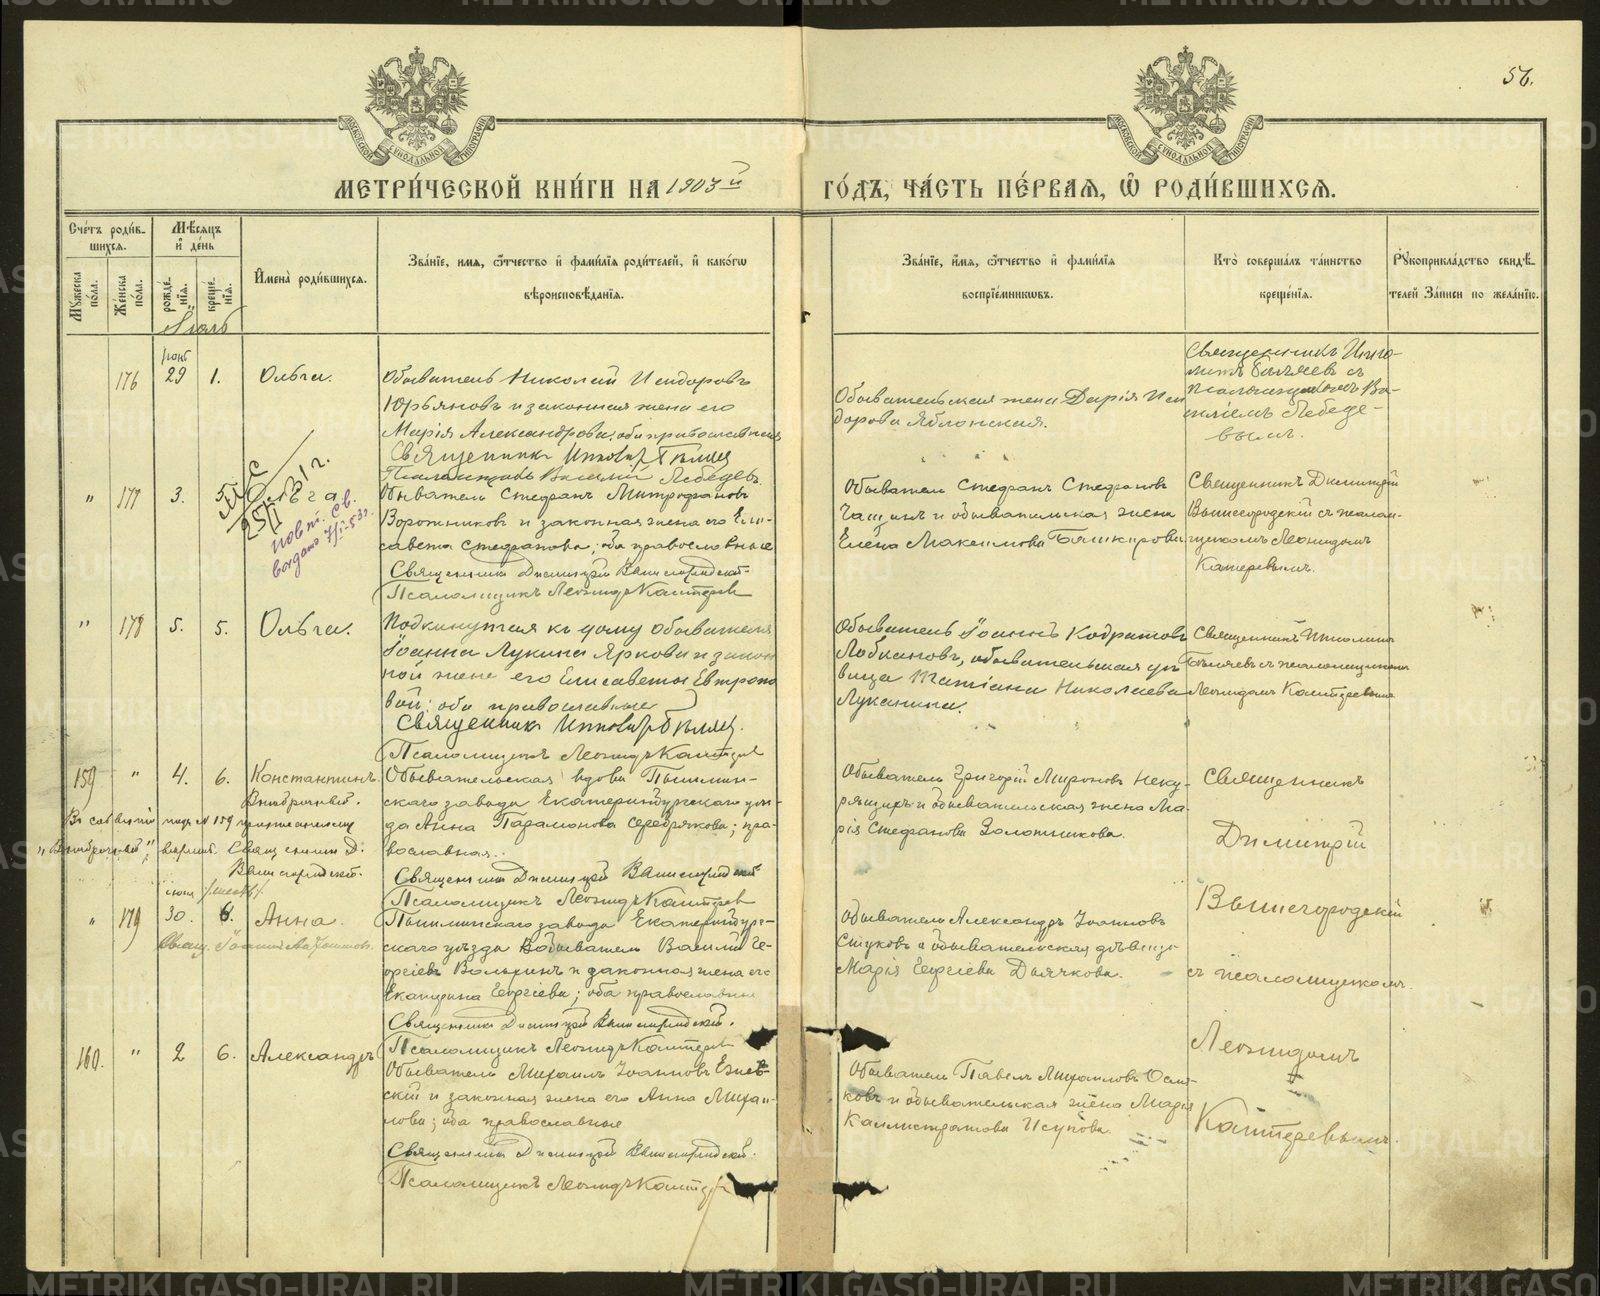 56.
МЕТРИ́ЧЕСКОЙ КНИ́ГИ НА 1903 й ГО́ДЪ, ЧА́СТЬ ПЕ́РВАЯ, Ѡ РОДИ́ВШИХСЯ.
Сче́тъ роди́вшихся.
Мѣ́сяцъ и де́нь
Имена̀ роди́вшихся.
Зва́нїе, имя, ѻтчество и фами́лїя роди́телей, и како́гѡ вѣроисповѣ́данїя.
Зва́нїе, имя, ѻтчество и фами́лїя воспрїе́мникѡвъ.
Кто̀ соверша́лъ та́инство креще́нїя.
Рꙋкоприкла́дство свидѣ́телей за́писи по жела́нїю.
Мꙋжеска по́ла.
Же́нска по́ла.
рожде́нїя.
креще́нїя.
Іюль
176
29
1.
Ольга.
Обыватель Николай Исидоровъ
Юрьяновъ и законная жена его
Марія Александрова; оба православные
Священникъ Ипполитъ Бѣляев
Псаломщикъ Василій Лебедевъ.
Обывательская жена Дарія Исидорова Яблонская.
Священникъ Ипполитъ Бѣляевъ съ
псаломщикомъ Василіемъ Лебедевымъ.
" 177 3. 5. Ольга.
25/I
повт. св.
выдано
Обыватель Стефанъ Митрофановъ
Воротниковъ и законная жена его Елисавета Стефанова; оба православные
Священникъ Димитрій Вышегородскій.
Псаломщикъ Леонидъ Катеревъ
Обыватель Стефанъ Стефановъ
и обывательская жена
Елена Максимова Башкирова.
Священникъ Димитрій
Вышегородскій съ псаломщикомъ Леонидомъ
Катеревымъ.
" 178 5. 5. Ольга.
Подкинутая къ дому обывателя
Іоанна Лукина Яркова и законной жене его Елисаветы Евтроповой; оба православные
Священникъ Ипполитъ Бѣляев.
Псаломщикъ Леонидъ Катерев
Обыватель Іоаннъ Кодратовъ
Лобкановъ, обывательская дѣвица Татіана Николаева
Луканина.
Священникъ Ипполитъ
Бѣляевъ съ псаломщикомъ
Леонидомъ Катеревымъ
159 " 4. 6. Константинъ.
Внѣбрачный.
"Внѣбрачный"
Священникъ Д.
Вышегородскій.
Обывательская вдова Пышминскаго завода Екатеринбургскаго уѣзда Анна Парамонова Серебрякова; православная.
Священникъ Димитрій Вышегородскій
Псаломщикъ Леонидъ Катерев
Обыватель Григорій Мироновъ Некурящихъ и обывательская жена Марія Стефанова Золотникова.
Священникъ
Димитрій
Вышегородскій
съ псаломщикомъ
Леонидомъ
Катеревымъ.
" 179 30. 6. Анна.
Пышминскаго завода Екатеринбургскаго уѣзда обыватель Василій Георгіевъ Валькинъ и законная жена его
Екатерина Георгіева; оба православные
Священникъ Димитрій Вышегородскій.
Псаломщикъ Леонидъ Катеревъ
Обыватель Александръ Іоанновъ
Стуковъ и обывательская дѣвица
Марія Георгіева Дьячкова.
160. " 2 6. Александръ
Обыватель Михаилъ Іоанновъ
и законная жена его Анна Михайлова; оба православные
Священникъ Димитрій Вышегородскій.
Псаломщикъ Леонидъ Катерев
Обыватель Павелъ Михаиловъ
и обывательская жена Марія
Каллистратова Исупова.